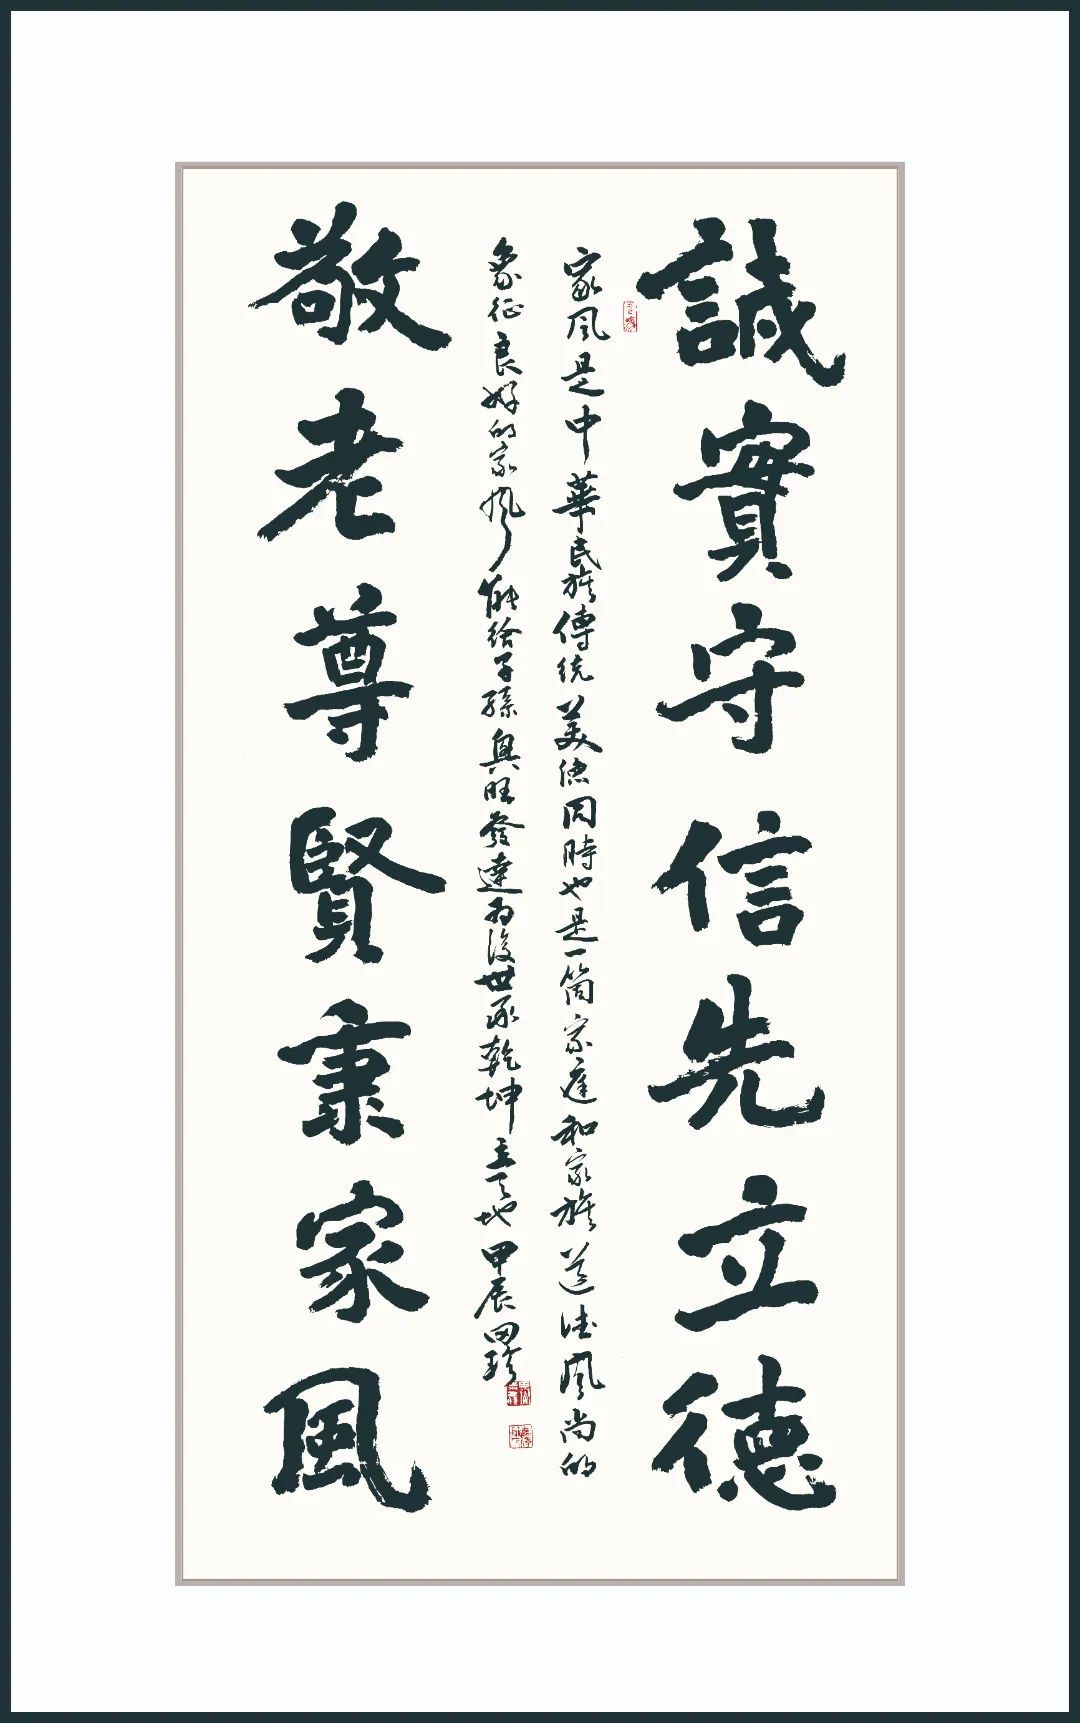 誠實守信先立德
家風是中華民族傳統美德同時也是一箇家庭和家族道德風尚的
象征良好的家風能給子孫興旺發達為後世承乾坤立天地甲辰田珍
敬老尊賢秉家風